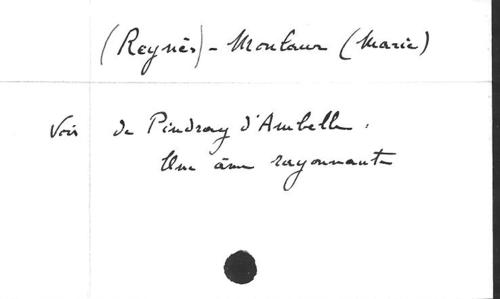 (Reynès) - Montaur (Marie)
Voir de Pindray d'Ambelle.
Une âme rayonnante